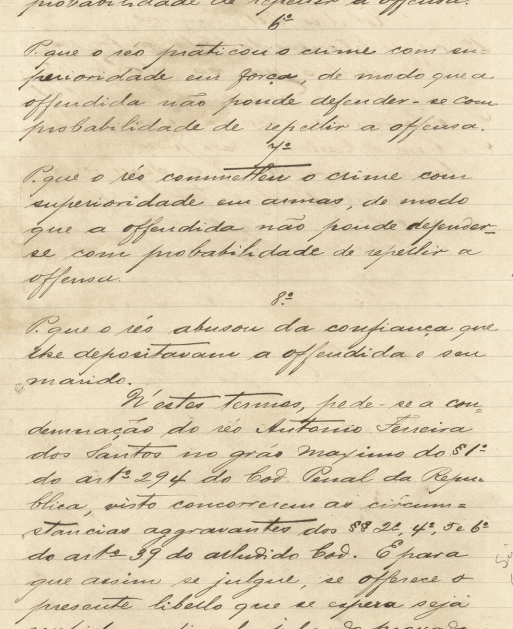 probabilidade de repellir a offensa.
6º
P. que o réo praticou o crime com su-
perioridade em força, de modo que a
offendida não poude defender-se com
probabilidade de repellir a offensa.
7º
P. que o réo commetteu o crime com
superioridade em armas, de modo
que a offendida não poude defender-
se com probabilidade de repellir a
offensa.
8º
P. que o réo abusou da confiança que
lhe depositavam a offendida e seu
marido.
N'estes termos, pede-se a con-
demnação do réo Antonio Ferreira
dos Santos no gráo maximo do § 1º
do artº 294 do Cod. Penal da Repu-
blica, visto concorrerem as circum-
stancias aggravantes dos §§ 2º, 4º, 5 e 6º
do artº 39 do alludido Cod. E para
que assim se julgue, se offerece o
presente libello que se espera seja